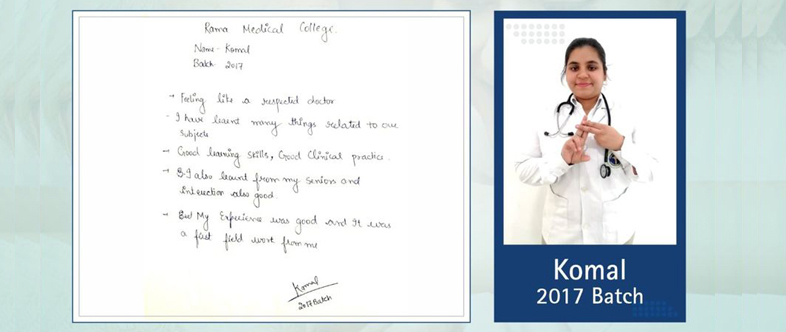 Rama Medical College.
Name - Komal
Batch 2017
→ Feeling like a respected doctor
- I have learnt many things related to our
subjects
→ Good learning skills, Good Clinical practice.
→ I also learnt from my seniors and
interection also good
→ But My Experience was good and It was
a fast field work from me
Komal
2017 Batch
Komal
2017 Batch